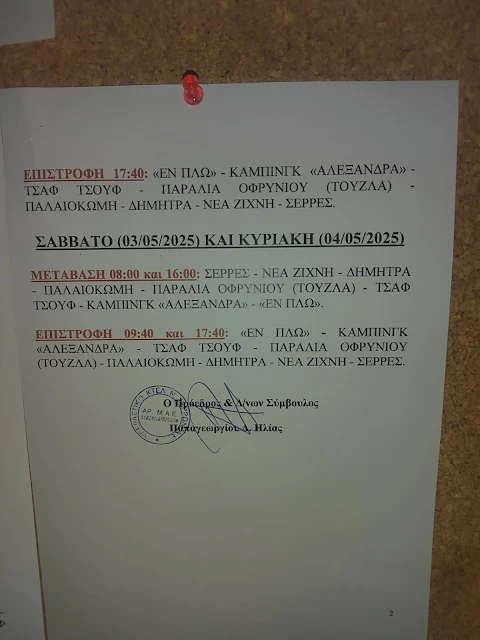 ΕΠΙΣΤΡΟΦΗ 17:40: «ΕΝ ΠΛΩ» - ΚΑΜΠΙΝΓΚ «ΑΛΕΞΑΝΔΡΑ» -
ΤΣΑΦ ΤΣΟΥΦ - ΠΑΡΑΛΙΑ ΟΦΡΥΝΙΟΥ (ΤΟΥΖΛΑ) -
ΠΑΛΑΙΟΚΩΜΗ - ΔΗΜΗΤΡΑ - ΝΕΑ ΖΙΧΝΗ - ΣΕΡΡΕΣ.
ΣΑΒΒΑΤΟ (03/05/2025) ΚΑΙ ΚΥΡΙΑΚΗ (04/05/2025)
ΜΕΤΑΒΑΣΗ 08:00 και 16:00: ΣΕΡΡΕΣ - ΝΕΑ ΖΙΧΝΗ - ΔΗΜΗΤΡΑ
- ΠΑΛΑΙΟΚΩΜΗ - ΠΑΡΑΛΙΑ ΟΦΡΥΝΙΟΥ (ΤΟΥΖΛΑ) - ΤΣΑΦ
ΤΣΟΥΦ - ΚΑΜΠΙΝΓΚ «ΑΛΕΞΑΝΔΡΑ» - «ΕΝ ΠΛΩ».
ΕΠΙΣΤΡΟΦΗ 09:40 και 17:40: «ΕΝ ΠΛΩ» - ΚΑΜΠΙΝΓΚ
«ΑΛΕΞΑΝΔΡΑ» - ΤΣΑΦ ΤΣΟΥΦ - ΠΑΡΑΛΙΑ ΟΦΡΥΝΙΟΥ
(ΤΟΥΖΛΑ) - ΠΑΛΑΙΟΚΩΜΗ - ΔΗΜΗΤΡΑ - ΝΕΑ ΖΙΧΝΗ - ΣΕΡΡΕΣ.
Ο Πρόεδρος & Δ/νων Σύμβουλος
ΑΡ. Μ.Α.Ε.
Παπαγεωργίου Δ. Ηλίας
2